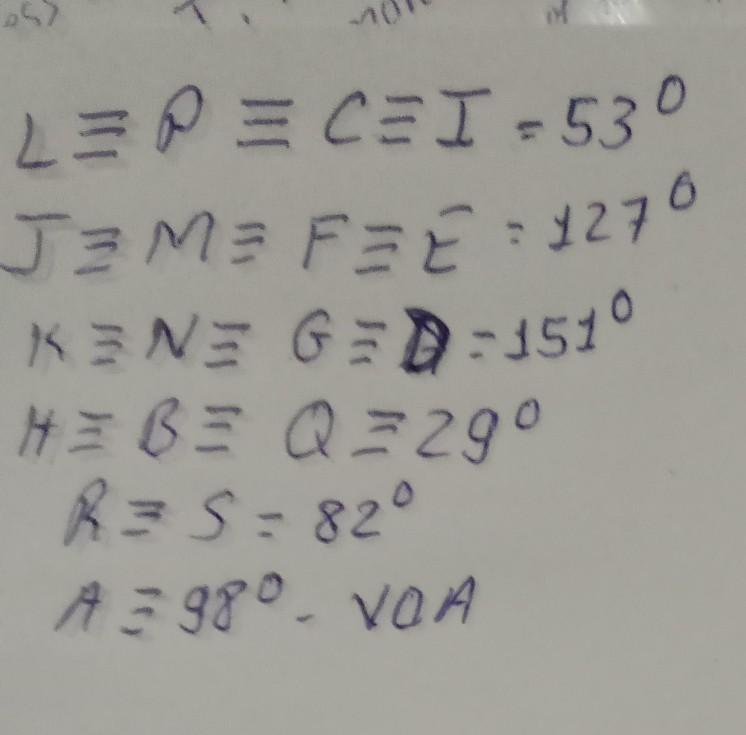 L ≡ P ≡ C ≡ I = 53°
J ≡ M ≡ F ≡ E = 127°
K ≡ N ≡ G ≡ D = 151°
H ≡ B ≡ Q ≡ 29°
R ≡ S = 82°
A ≡ 98° - VOA